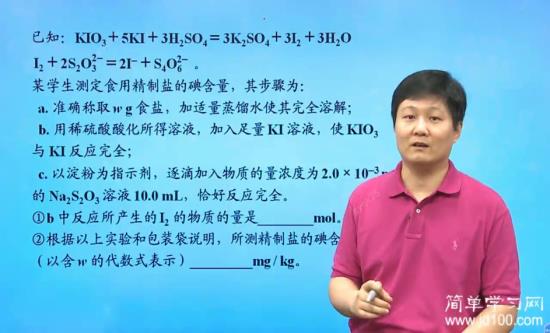 已知：KIO₃＋5KI＋3H₂SO₄＝3K₂SO₄＋3I₂＋3H₂O
I₂＋2S₂O₃²⁻＝2I⁻＋S₄O₆²⁻。
某学生测定食用精制盐的碘含量，其步骤为：
a. 准确称取w g食盐，加适量蒸馏水使其完全溶解；
b. 用稀硫酸酸化所得溶液，加入足量KI溶液，使KIO₃
与KI反应完全；
c. 以淀粉为指示剂，逐滴加入物质的量浓度为2.0×10⁻³
的Na₂S₂O₃溶液10.0 mL，恰好反应完全。
①b中反应所产生的I₂的物质的量是______mol。
②根据以上实验和包装袋说明，所测精制盐的碘含
（以含w的代数式表示）________mg/kg。
简单学习网
www.jd100.com